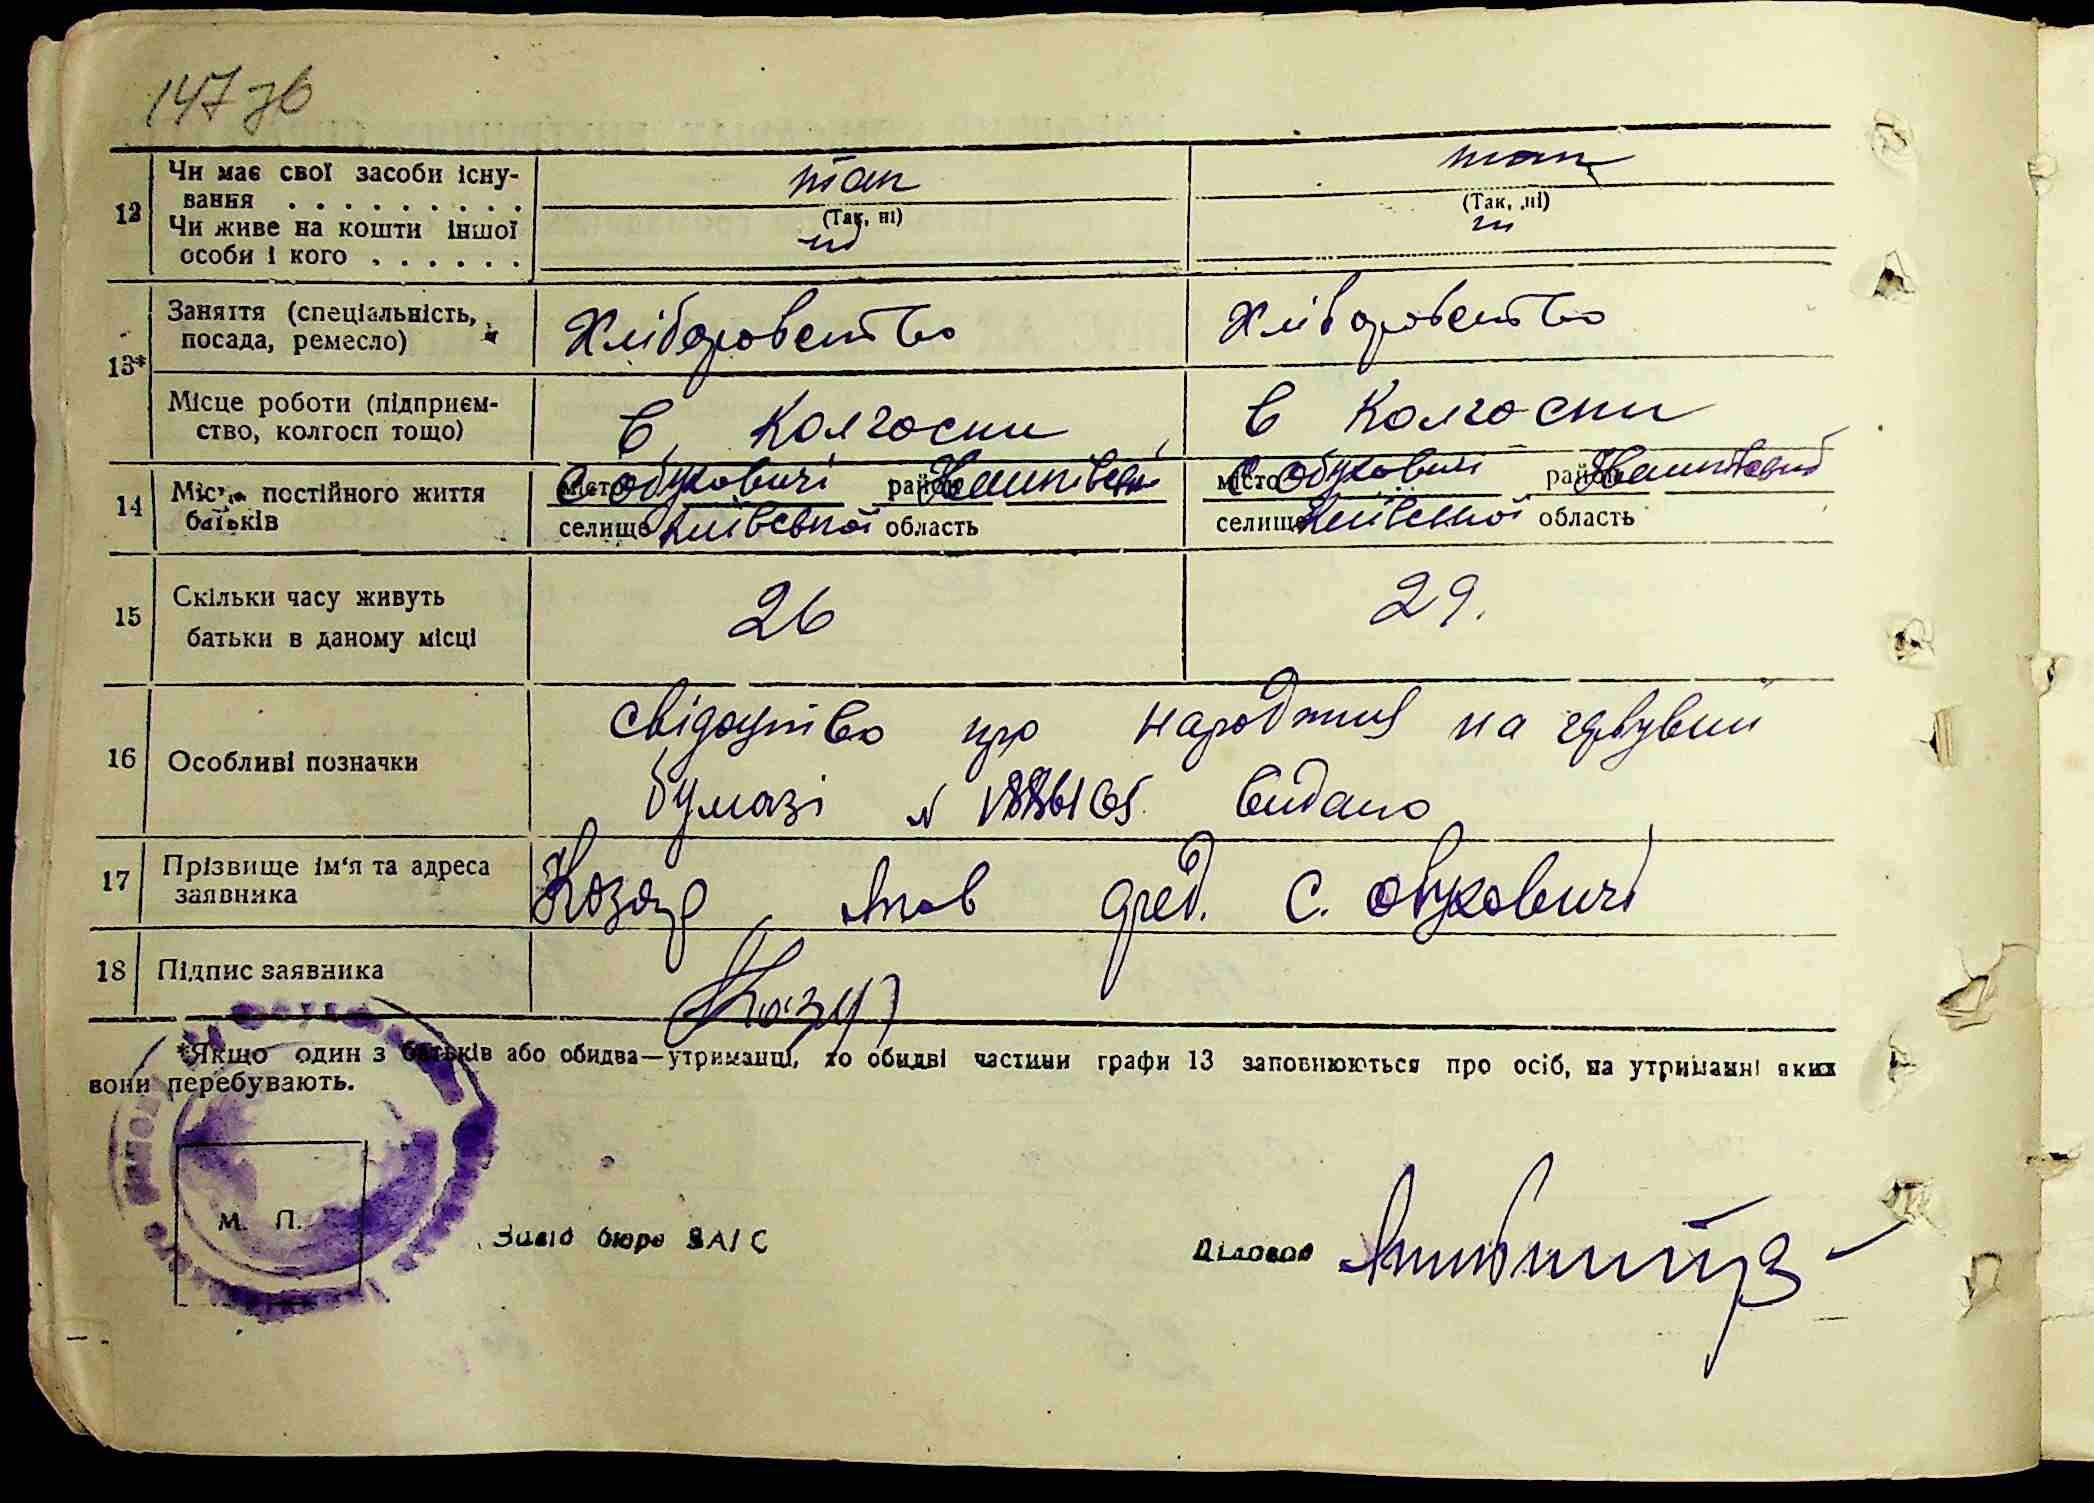 147 зв
12
Чи має свої засоби існу-
вання . . . . . . . . . так так
(Так, ні) (Так, ні)
Чи живе на кошти іншої ні ні
особи і кого . . . . . .
13*
Заняття (спеціальність,
посада, ремесло) Хліборовство Хліборовство
Місце роботи (підприєм-
ство, колгосп тощо) В Колгоспи В Колгоспи
14 Місце постійного життя
батьків
місто С Обуховичі район Іванківский місто С Обуховичі район Іванківский
селище Київської область селище Київської область
15 Скільки часу живуть
батьки в даному місці 26 29.
16 Особливі позначки
свідоцтво про народження на
бумазі N видано
17 Прізвище ім'я та адреса
заявника
Яков пред. С. Обуховичі
18 Підпис заявника
*Якщо один з батьків або обидва—утриманці, то обидві частини графи 13 заповнюються про осіб, на утриманні яких
вони перебувають.
М. П.
Завід бюро ЗАГС Діловод